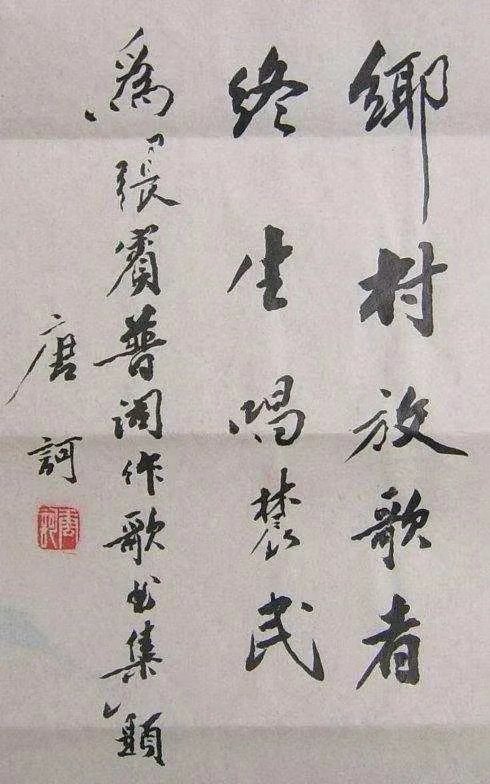 鄉村放歌者
終生唱農民
為「張賓普詞作歌曲集」題
唐訶
唐訶